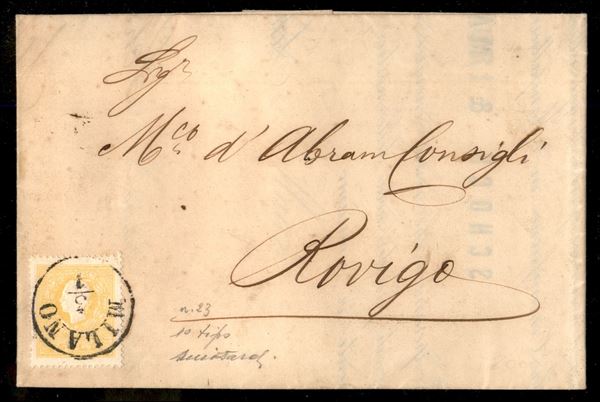 Sigr
Mco d'Abram Consigli
Rovigo
MILANO
n. 23
1o tipo